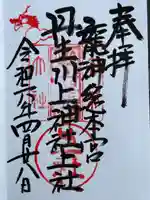 奉拝
龍神総本宮
丹生川上神社上社
令和六年四月廿八日